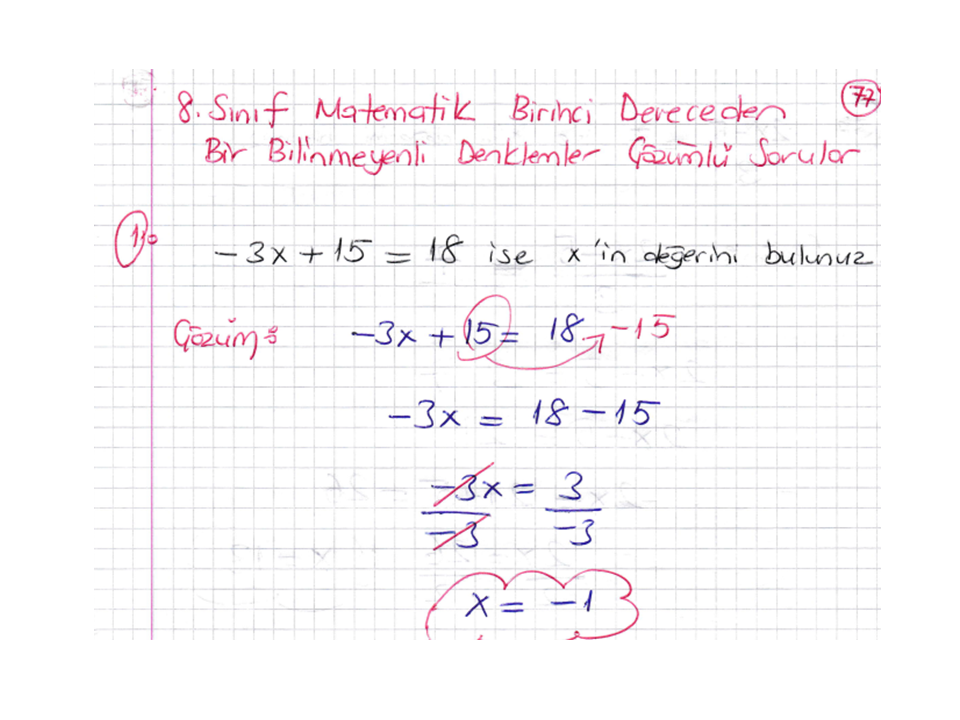 77
8. Sınıf Matematik Birinci Dereceden
Bir Bilinmeyenli Denklemler Çözümlü Sorular
1.
-3x + 15 = 18 ise x'in değerini bulunuz
Çözüm: -3x + 15 = 18 -15
-3x = 18 - 15
-3x = 3
-3 -3
x = -1